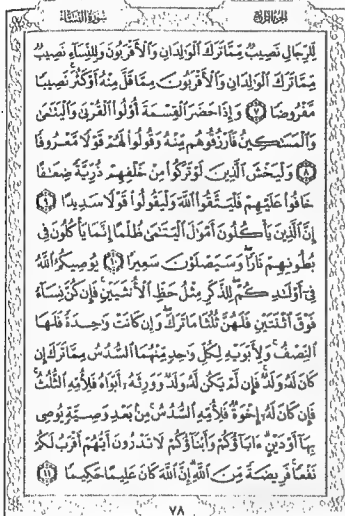 الجزء الرابع
سورة النساء
لِّلرِّجَالِ نَصِيبٌ مِّمَّا تَرَكَ الْوَٰلِدَانِ وَالْأَقْرَبُونَ وَلِلنِّسَاءِ نَصِيبٌ
مِّمَّا تَرَكَ الْوَٰلِدَانِ وَالْأَقْرَبُونَ مِمَّا قَلَّ مِنْهُ أَوْ كَثُرَ نَصِيبًا
مَّفْرُوضًا ٧ وَإِذَا حَضَرَ الْقِسْمَةَ أُو۟لُوا۟ الْقُرْبَىٰ وَالْيَتَٰمَىٰ
وَالْمَسَٰكِينُ فَارْزُقُوهُم مِّنْهُ وَقُولُوا۟ لَهُمْ قَوْلًا مَّعْرُوفًا
٨ وَلْيَخْشَ الَّذِينَ لَوْ تَرَكُوا۟ مِنْ خَلْفِهِمْ ذُرِّيَّةً ضِعَٰفًا
خَافُوا۟ عَلَيْهِمْ فَلْيَتَّقُوا۟ اللَّهَ وَلْيَقُولُوا۟ قَوْلًا سَدِيدًا ٩
إِنَّ الَّذِينَ يَأْكُلُونَ أَمْوَٰلَ الْيَتَٰمَىٰ ظُلْمًا إِنَّمَا يَأْكُلُونَ فِي
بُطُونِهِمْ نَارًا وَسَيَصْلَوْنَ سَعِيرًا ١٠ يُوصِيكُمُ اللَّهُ
فِي أَوْلَٰدِكُمْ لِلذَّكَرِ مِثْلُ حَظِّ الْأُنثَيَيْنِ فَإِن كُنَّ نِسَاءً
فَوْقَ اثْنَتَيْنِ فَلَهُنَّ ثُلُثَا مَا تَرَكَ وَإِن كَانَتْ وَٰحِدَةً فَلَهَا
النِّصْفُ وَلِأَبَوَيْهِ لِكُلِّ وَٰحِدٍ مِّنْهُمَا السُّدُسُ مِمَّا تَرَكَ إِن
كَانَ لَهُۥ وَلَدٌ فَإِن لَّمْ يَكُن لَّهُۥ وَلَدٌ وَوَرِثَهُۥ أَبَوَاهُ فَلِأُمِّهِ الثُّلُثُ
فَإِن كَانَ لَهُۥ إِخْوَةٌ فَلِأُمِّهِ السُّدُسُ مِنۢ بَعْدِ وَصِيَّةٍ يُوصِي
بِهَا أَوْ دَيْنٍ ءَابَاؤُكُمْ وَأَبْنَاؤُكُمْ لَا تَدْرُونَ أَيُّهُمْ أَقْرَبُ لَكُمْ
نَفْعًا فَرِيضَةً مِّنَ اللَّهِ إِنَّ اللَّهَ كَانَ عَلِيمًا حَكِيمًا ١١
٧٨